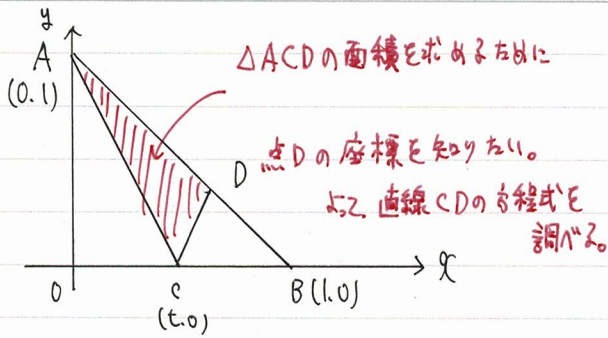 y
A
(0.1)
△ACDの面積を求めるために
点Dの座標を知りたい。
よって、直線CDの方程式を
調べる。
D
O
C
(t.0)
B(1.0)
x